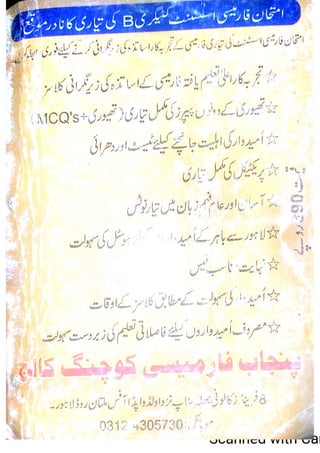 امتحان فارمیسی اسسٹنٹ کیٹیگری B کی تیاری کا نادر موقع
امتحان فارمیسی اسسٹنٹ کی تیاری فارمیسی کے تجربہ کار اساتذہ کی زیر نگرانی کرنے کیلئے فوری
☆ تجربہ کار اعلیٰ تعلیم یافتہ فارمیسی کے اساتذہ کی زیر نگرانی کلاسز
☆ تھیوری کے دونوں پیپرز کی مکمل تیاری (تھیوری+MCQ's)
☆ اُمیدوار کی اہلیت جانچنے کیلئے ٹیسٹ اور دھرائی
☆ پریکٹیکل کی مکمل تیاری
☆ آسان اور عام فہم زبان میں تیار نوٹس
☆ لاہور سے باہر کے اُمیدواروں کیلئے ہوسٹل کی سہولت
☆ نہایت مناسب فیس
☆ اُمیدوار کی سہولت کے مطابق کلاسز کے اوقات
☆ مصروف اُمیدواروں کیلئے فاصلاتی تعلیم کی زبردست سہولت
قیمت 390 روپے
پنجاب فارمیسی کوچنگ کالج
8 فرینڈز کالونی سٹاپ نزد اولڈ واپڈا آفس ملتان روڈ لاہور۔
موبائل: 0312 4305730
Scanned with Ca